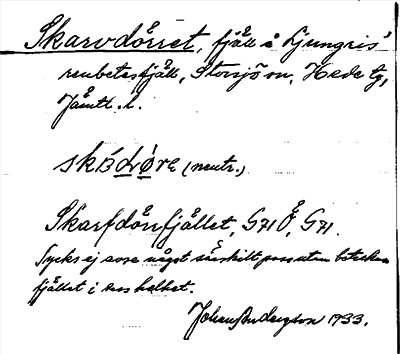 Skarvdörret, fjäll å Ljungris'
renbetesfjäll, Storsjö sn, Hede tg,
Jämtl. l.
skɒ́dŕø̀re (neutr.)
Skarfdörrfjället, G71Ö, G71.
Tycks ej avse något särskilt pass utan beteckna
fjället i dess helhet.
Johan Andersson 1933.